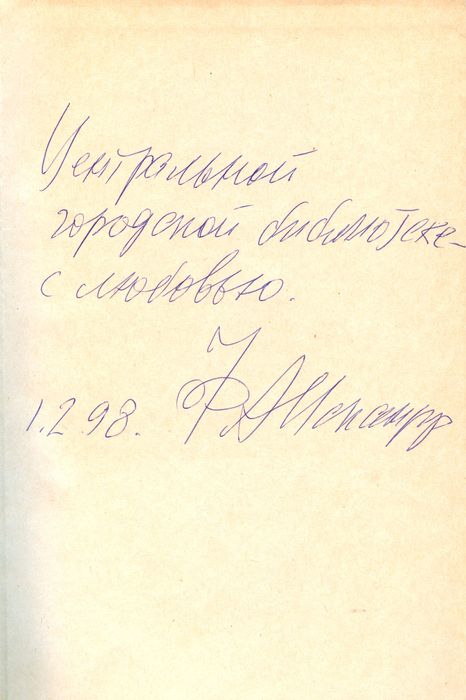 Центральной
городской библиотеке –
с любовью.
1.2.98. Ф. Искандер